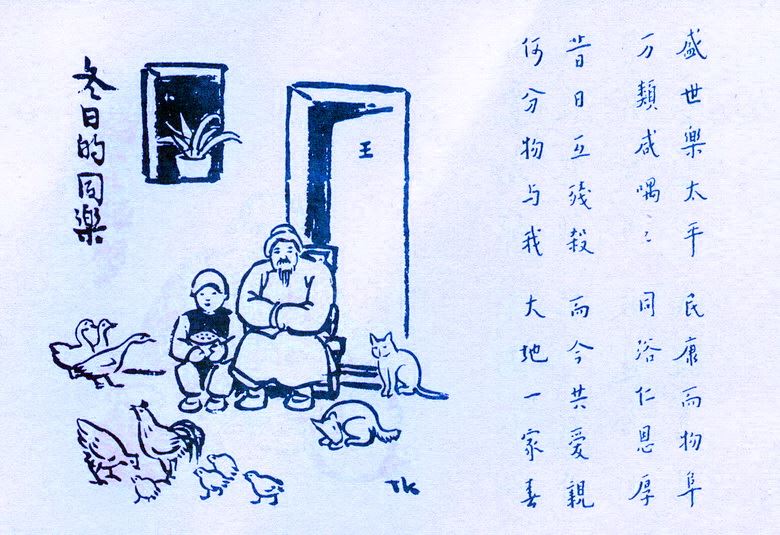 盛世樂太平 民康而物阜
万類咸喁〻 同浴仁恩厚
昔日互殘殺 而今共愛親
何分物与我 大地一家春
王
冬日的同樂
TK